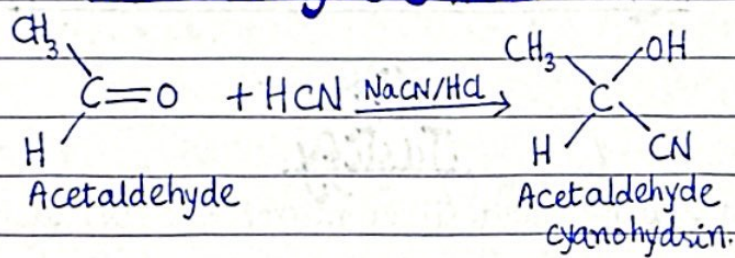 CH3 C=O H + HCN NaCN/HCl CH3 OH C H CN
Acetaldehyde Acetaldehyde
cyanohydrin.